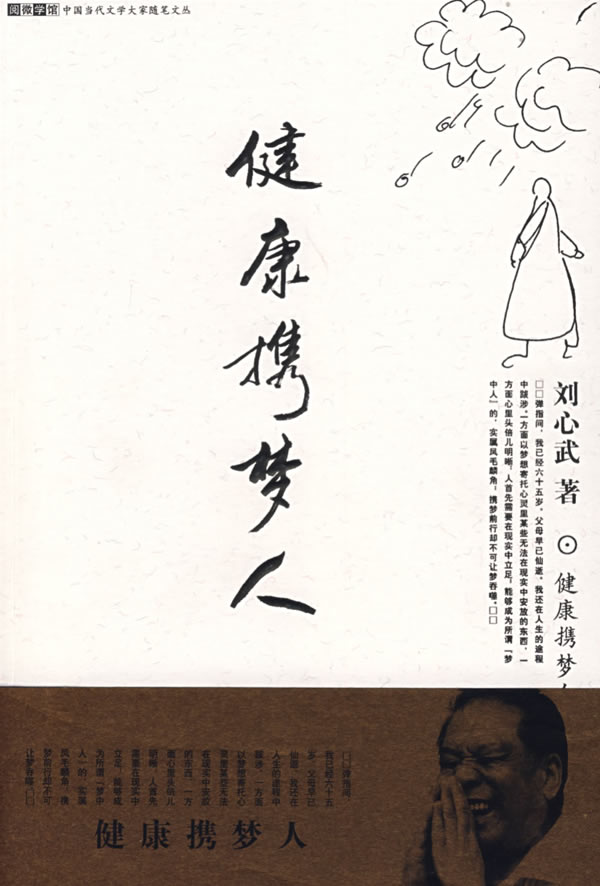 阅微学馆 中国当代文学大家随笔文丛
健康携梦人
刘心武 著 ⊙ 健康携梦人
□□弹指间，我已经六十五岁，父母早已仙逝，我还在人生的途程
中跋涉。一方面以梦想寄托心灵里某些无法在现实中安放的东西，一
方面心里头倍儿明晰，人首先需要在现实中立足，能够成为所谓「梦
中人」的，实属凤毛麟角；携梦前行却不可让梦吞噬。□□
□□弹指间，
我已经六十五
岁，父母早已
仙逝，我还在
人生的途程中
跋涉。一方面
以梦想寄托心
灵里某些无法
在现实中安放
的东西，一方
面心里头倍儿
明晰，人首先
需要在现实中
立足，能够成
为所谓「梦中
人」的，实属
凤毛麟角；携
梦前行却不可
让梦吞噬。□□
健康携梦人